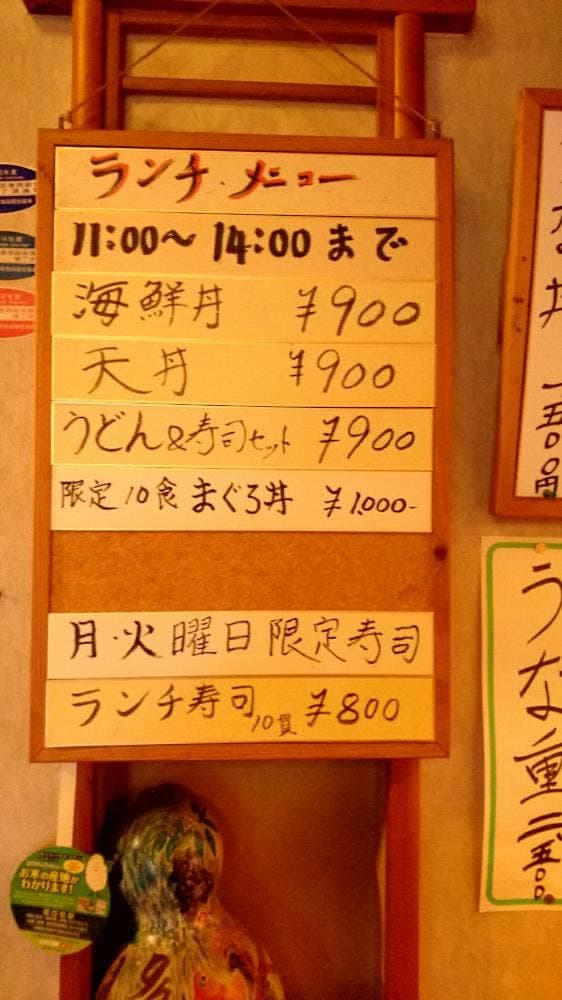 ランチ・メニュー
11:00〜14:00まで
海鮮丼 ¥900
天丼 ¥900
うどん&寿司セット ¥900
限定10食まぐろ丼 ¥1,000-
月・火曜日限定寿司
ランチ寿司10貫 ¥800
丼 一五〇〇円
うな重 二五〇〇
お米の産地が
わかります!